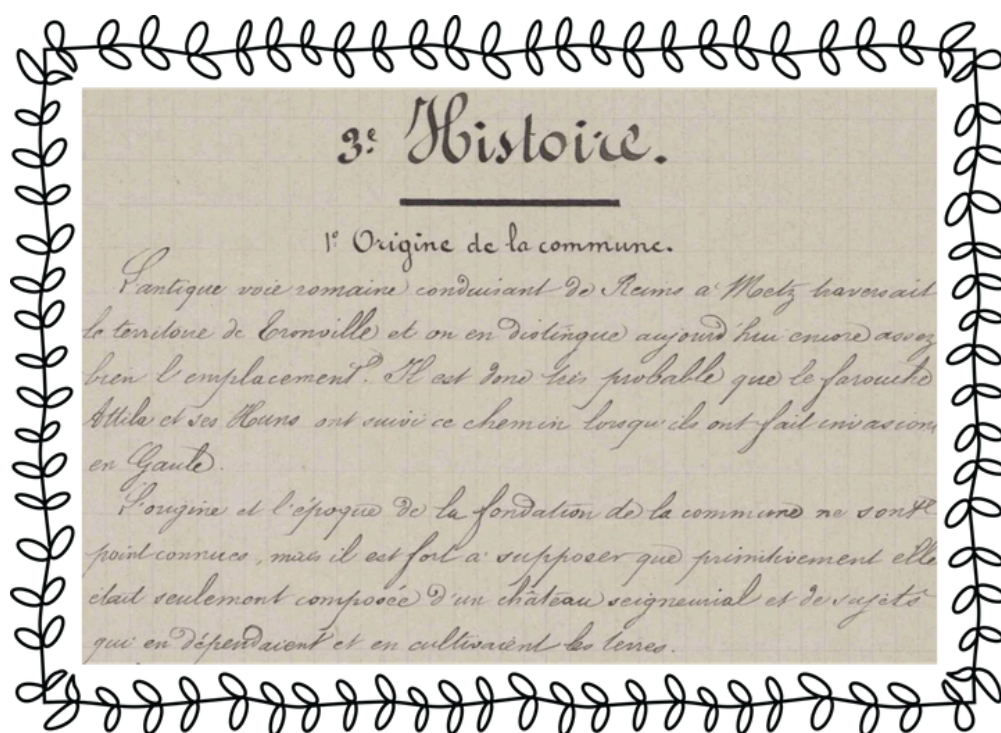 3.e Histoire.
1.o Origine de la commune.
L'antique voie romaine conduisant de Reims à Metz traversait
le territoire de Tronville et on en distingue aujourd'hui encore assez
bien l'emplacement. Il est donc très probable que le farouche
Attila et ses Huns ont suivi ce chemin lorsqu'ils ont fait invasion
en Gaule.
L'origine et l'époque de la fondation de la commune ne sont
point connues, mais il est fort à supposer que primitivement elle
était seulement composée d'un château seigneurial et de sujets
qui en dépendaient et en cultivaient les terres.